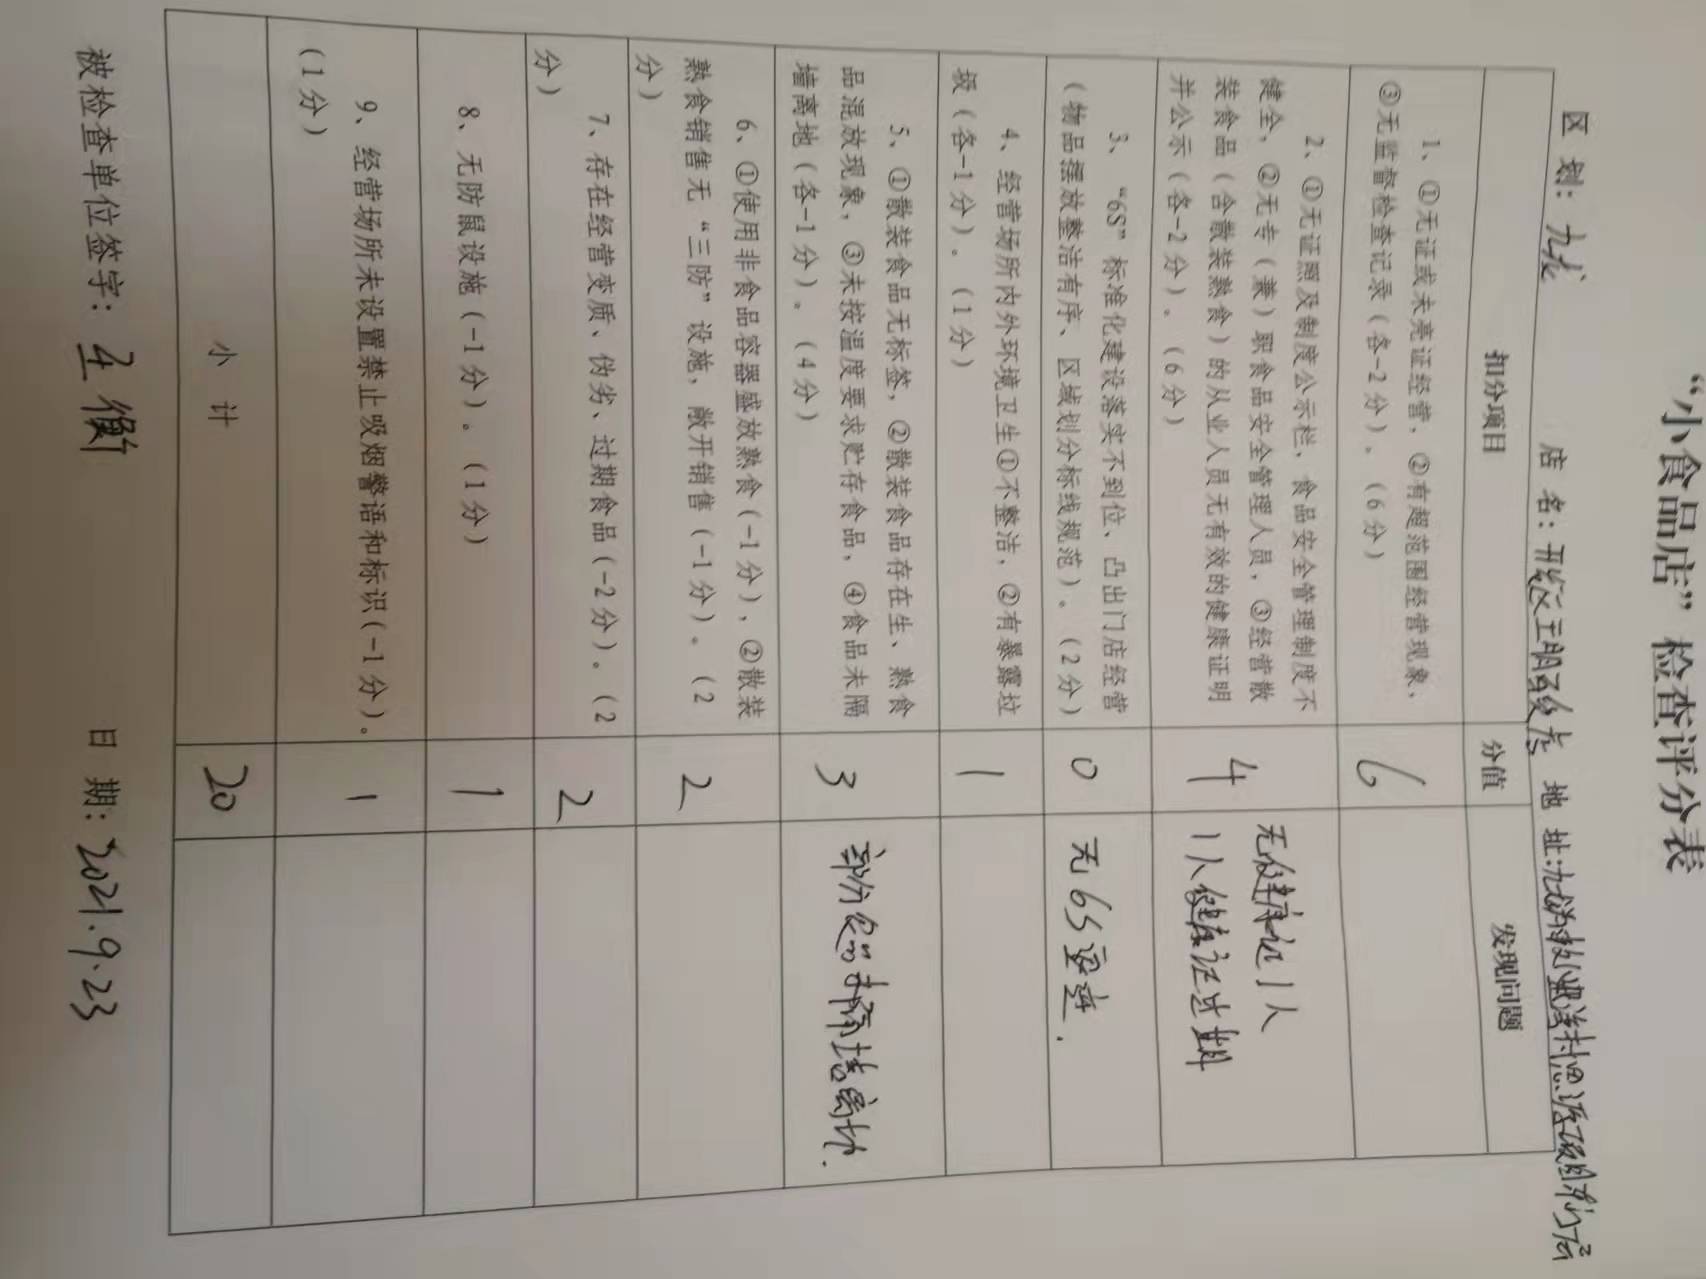 “小食品店”检查评分表
区 划：九龙 店 名：开发区王明 地 址：九龙
扣分项目 分值 发现问题
1、①无证或未亮证经营，②有超范围经营现象，
③无监督检查记录（各-2分）。（6分）
6
2、①无证照及制度公示栏，食品安全管理制度不
健全，②无专（兼）职食品安全管理人员，③经营散
装食品（含散装熟食）的从业人员无有效的健康证明
并公示（各-2分）。（6分）
4
无健康证1人
1人健康证过期
3、“6S”标准化建设落实不到位、凸出门店经营
（物品摆放整洁有序、区域划分标线规范）。（2分）
0
无6S
4、经营场所内外环境卫生①不整洁，②有暴露垃
圾（各-1分）。（1分）
1
5、①散装食品无标签，②散装食品存在生、熟食
品混放现象，③未按温度要求贮存食品，④食品未隔
墙离地（各-1分）。（4分）
3
部份食品未隔墙离地.
6、①使用非食品容器盛放熟食（-1分），②散装
熟食销售无“三防”设施，敞开销售（-1分）。（2
分）
2
7、存在经营变质、伪劣、过期食品（-2分）。（2
分）
2
8、无防鼠设施（-1分）。（1分）
1
9、经营场所未设置禁止吸烟警语和标识（-1分）。
（1分）
1
小 计
20
被检查单位签字： 日 期：2021.9.23